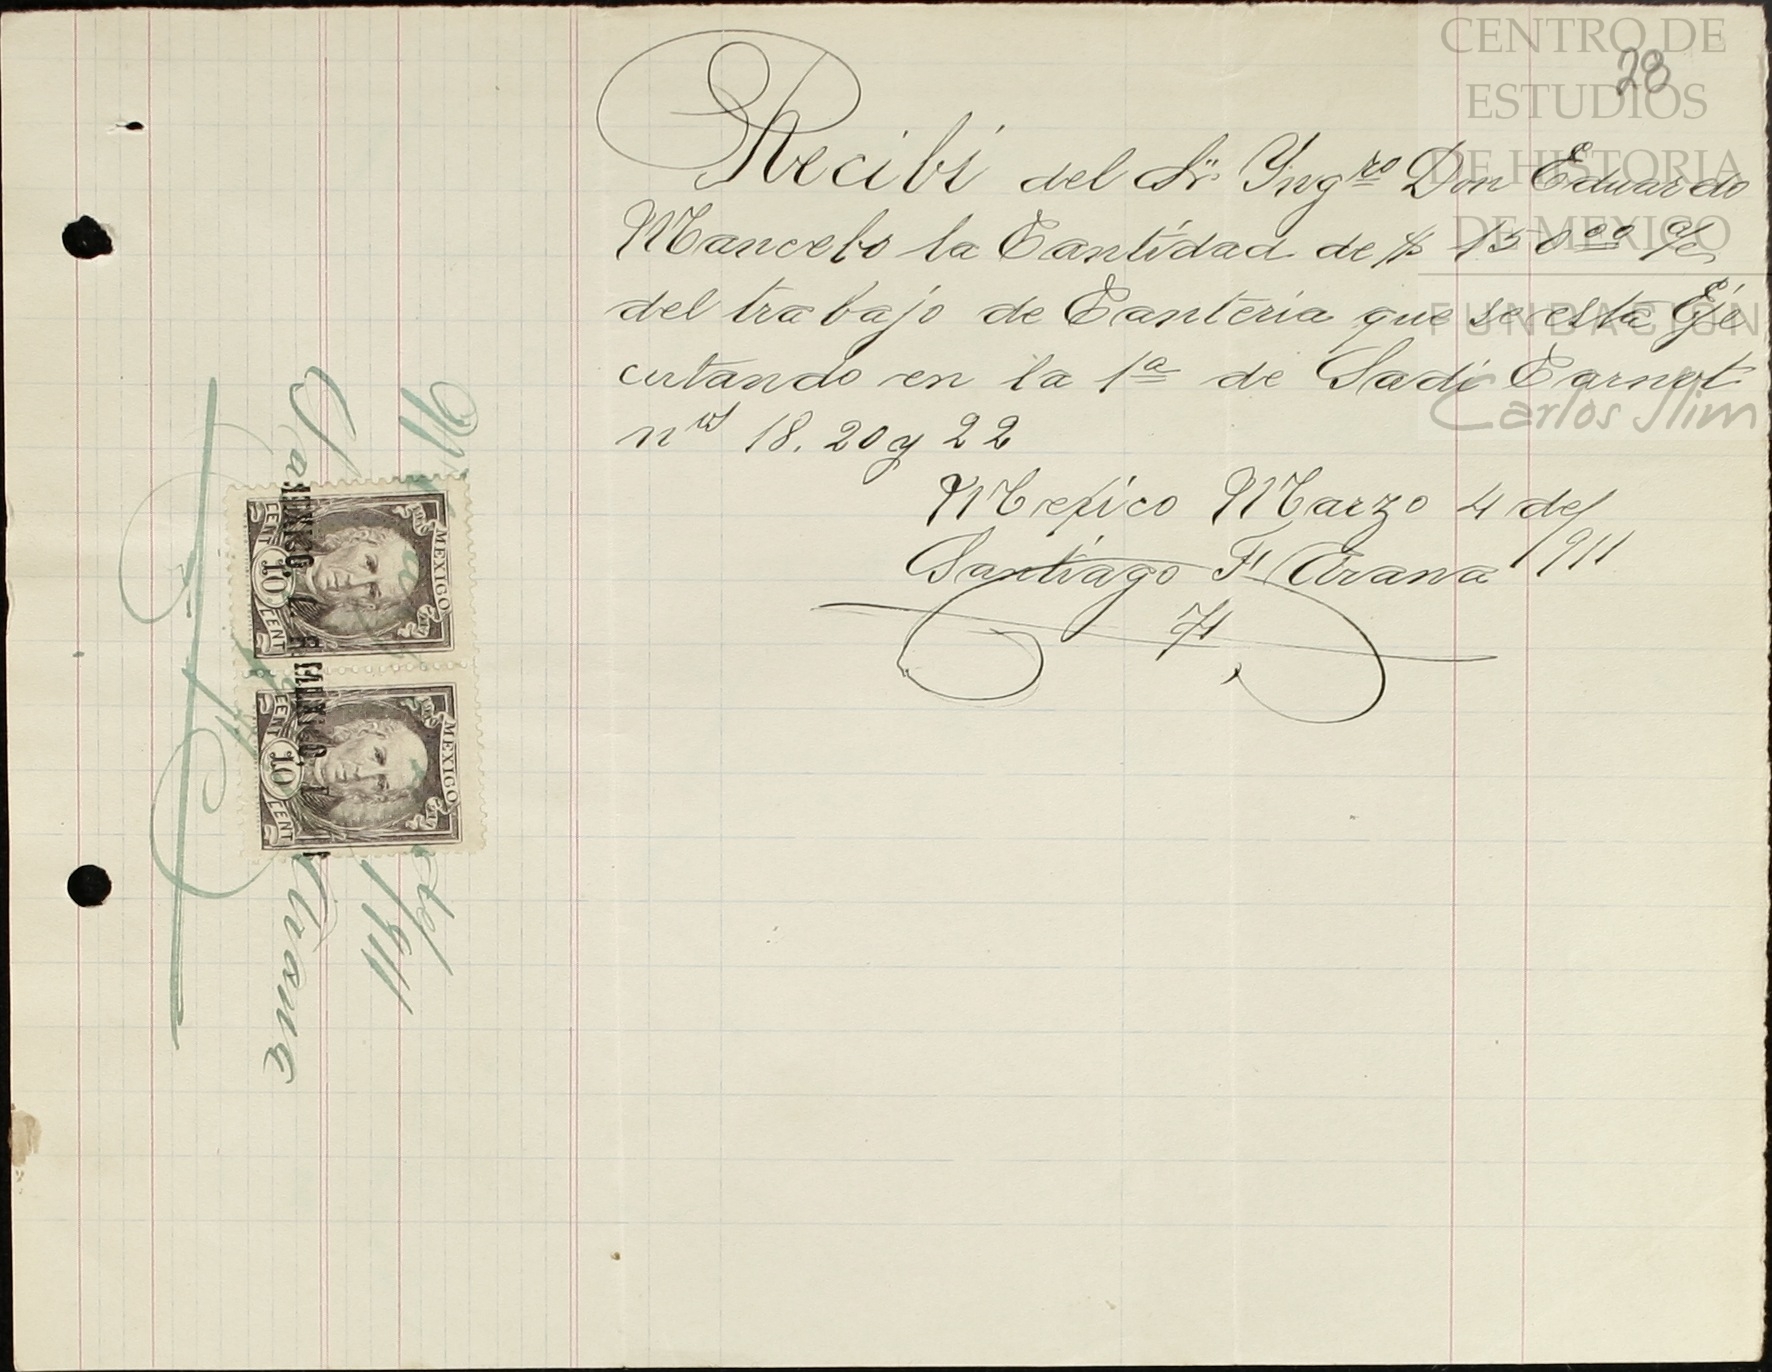 28
Recibi del Sr. Yngro Don Eduardo
Mancebo la Cantidad de $ 150 00 a/c
del trabajo de Canteria que se esta Eje
cutando en la 1a de Sadi Carnot
nos 18. 20 y 22
Mexico Marzo 4 de/
1911
Santiago F Arana
CENTRO DE
ESTUDIOS
DE HISTORIA
DE MEXICO
FUNDACIÓN
Carlos Slim
1911
Arana
MEXICO
10
CENT
MEXICO
10
CENT